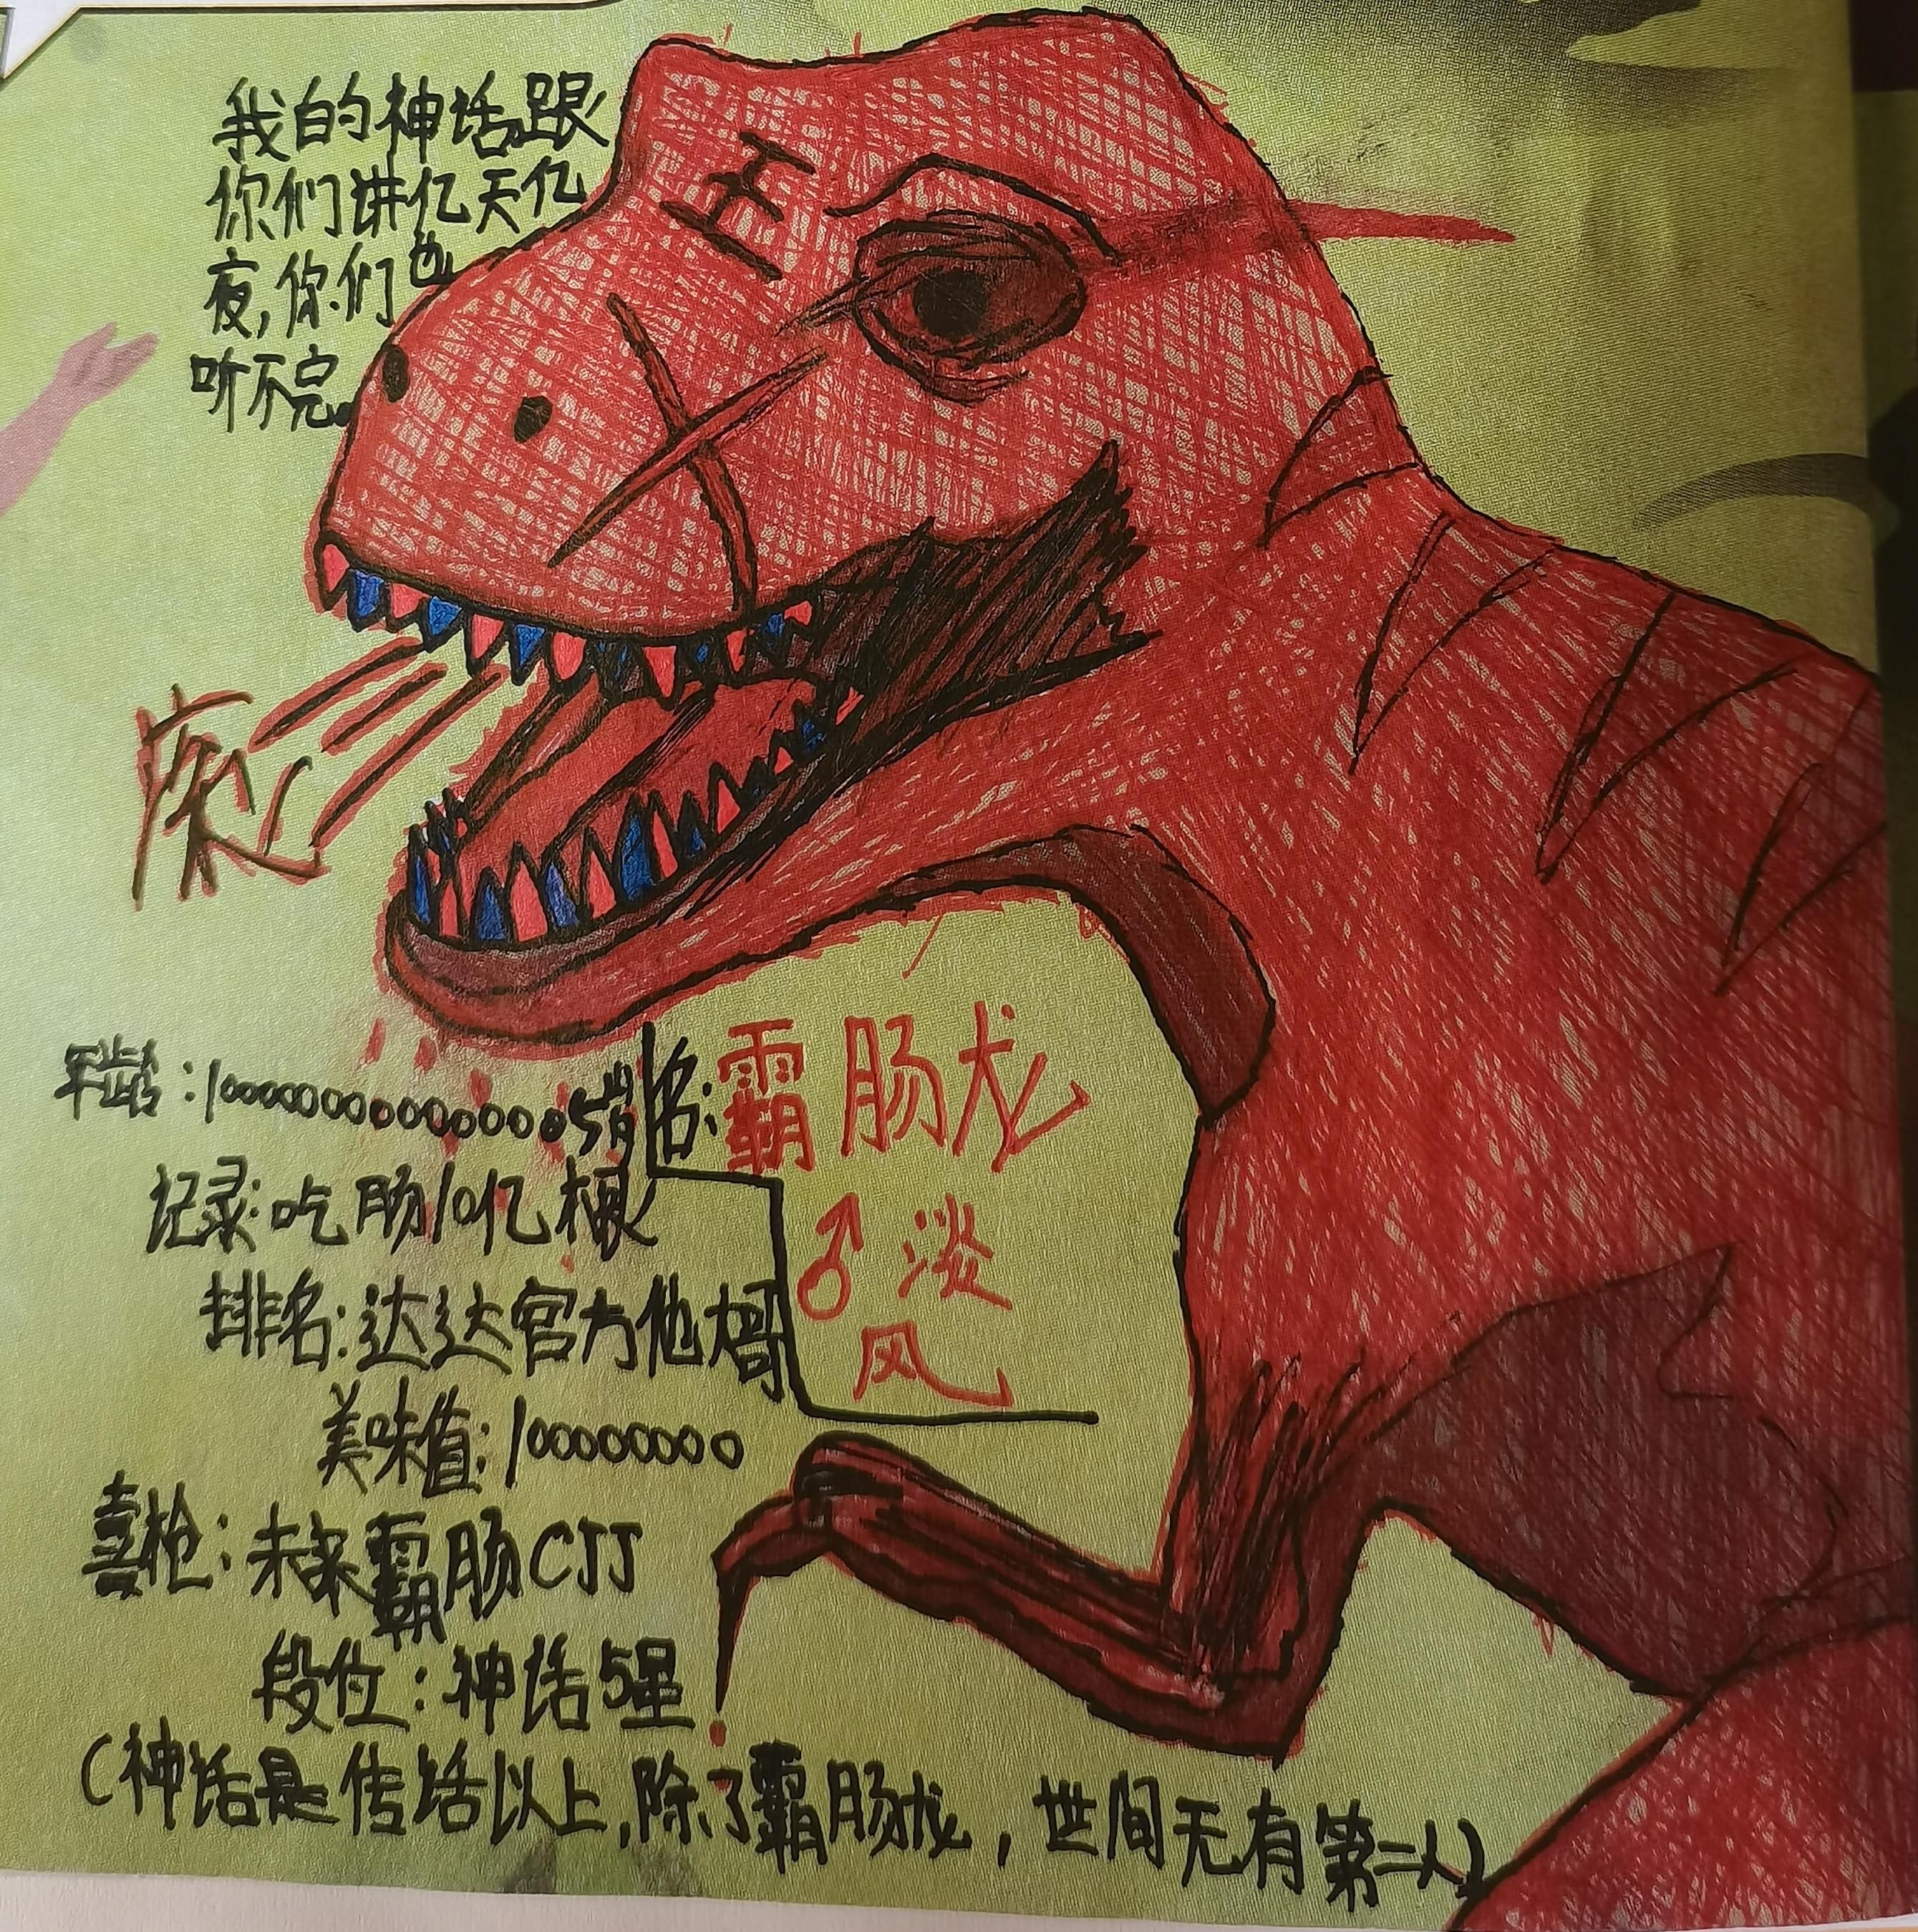 我的神话跟
你们讲亿天亿
夜,你们也
听不完。
年龄:10000000000000005岁
名:霸肠龙
♂
风
记录:吃肠10亿根
排名:达达官方他大哥
美味值:100000000
喜枪:未来霸肠CJJ
段位:神话5星
(神话是传话以上,除了霸肠龙,世间无有第二人)